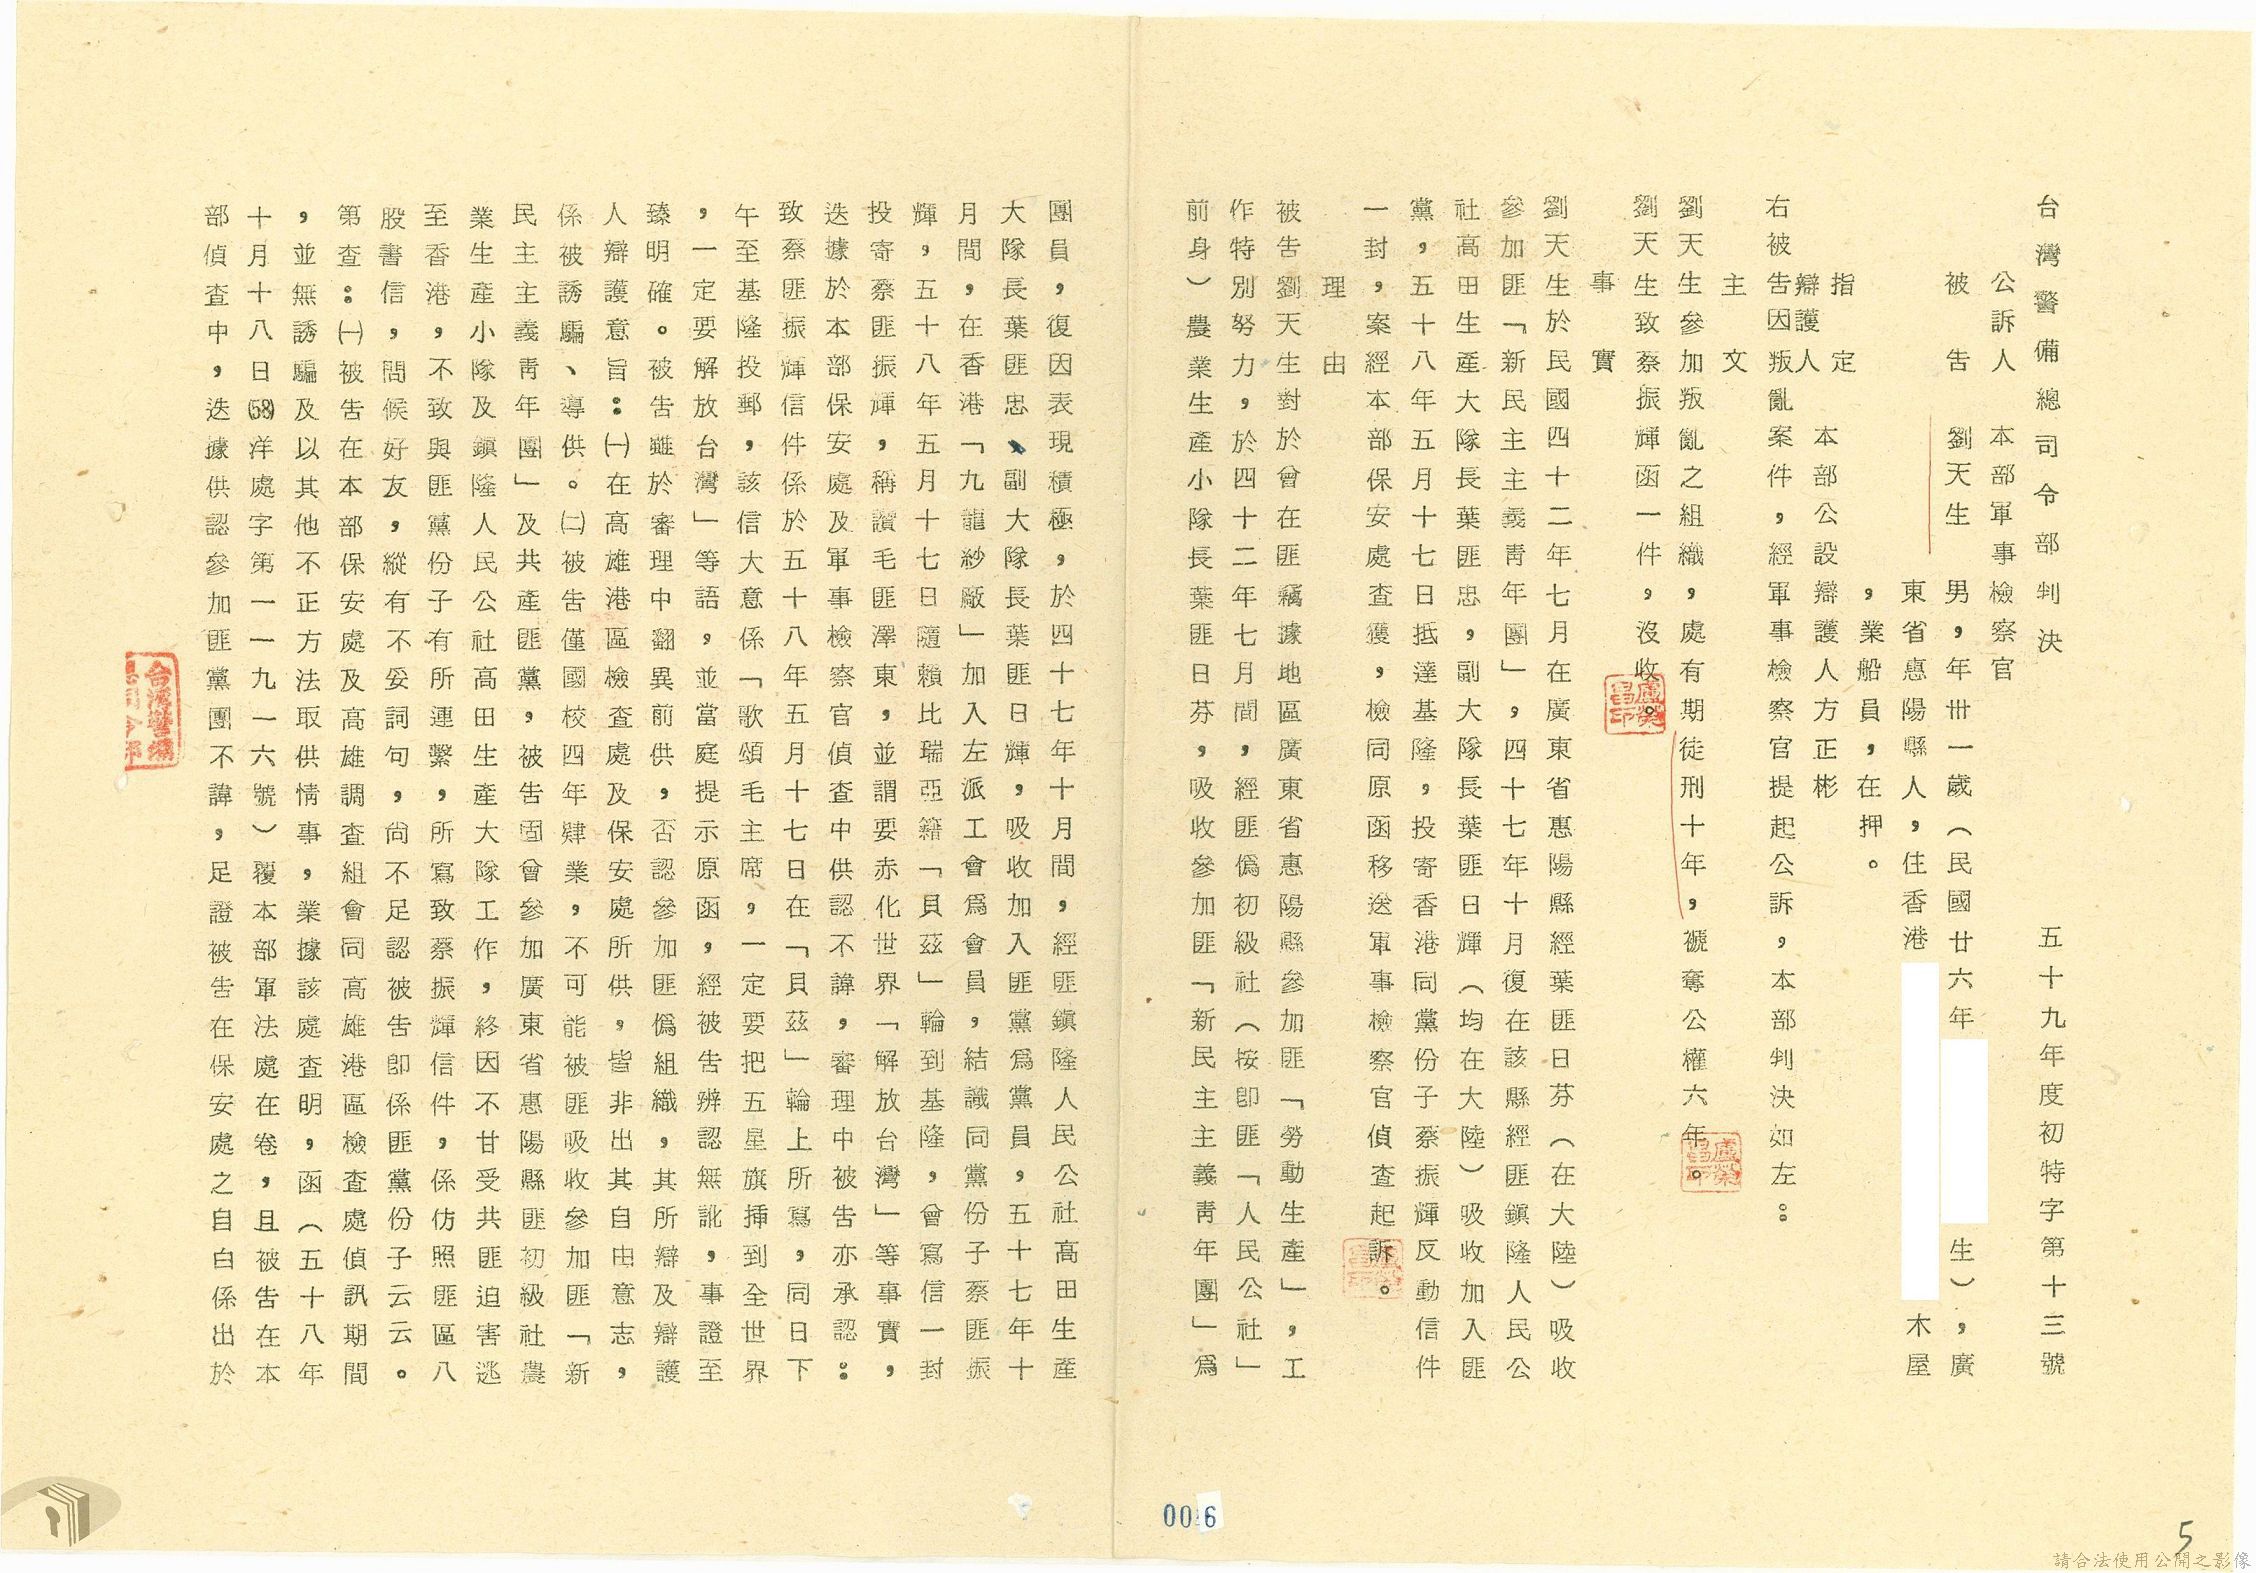 台灣警備總司令部判決　五十九年度初特字第十三號
公訴人　本部軍事檢察官
被告　劉天生　男，年卅一歲（民國廿六年　生），廣
東省惠陽縣人，住香港　木屋
，業船員，在押。
指定
辯護人　本部公設辯護人方正彬
右被告因叛亂案件，經軍事檢察官提起公訴，本部判決如左：
主文
劉天生參加叛亂之組織，處有期徒刑十年，褫奪公權六年。
劉天生致蔡振輝函一件，沒收。
事實
劉天生於民國四十二年七月在廣東省惠陽縣經葉匪日芬（在大陸）吸收
參加匪「新民主主義青年團」，四十七年十月復在該縣經匪鎮隆人民公
社高田生產大隊長葉匪忠，副大隊長葉匪日輝（均在大陸）吸收加入匪
黨，五十八年五月十七日抵達基隆，投寄香港同黨份子蔡振輝反動信件
一封，案經本部保安處查獲，檢同原函移送軍事檢察官偵查起訴。
理由
被告劉天生對於曾在匪竊據地區廣東省惠陽縣參加匪「勞動生產」，工
作特別努力，於四十二年七月間，經匪偽初級社（按即匪「人民公社」
前身）農業生產小隊長葉匪日芬，吸收參加匪「新民主主義青年團」為
團員，復因表現積極，於四十七年十月間，經匪鎮隆人民公社高田生產
大隊長葉匪忠、副大隊長葉匪日輝，吸收加入匪黨為黨員，五十七年十
月間，在香港「九龍紗廠」加入左派工會為會員，結識同黨份子蔡匪振
輝，五十八年五月十七日隨賴比瑞亞籍「貝茲」輪到基隆，曾寫信一封
投寄蔡匪振輝，稱讚毛匪澤東，並謂要赤化世界「解放台灣」等事實，
迭據於本部保安處及軍事檢察官偵查中供認不諱，審理中被告亦承認：
致蔡匪振輝信件係於五十八年五月十七日在「貝茲」輪上所寫，同日下
午至基隆投郵，該信大意係「歌頌毛主席，一定要把五星旗揷到全世界
，一定要解放台灣」等語，並當庭提示原函，經被告辨認無訛，事證至
臻明確。被告雖於審理中翻異前供，否認參加匪偽組織，其所辯及辯護
人辯護意旨：㈠在高雄港區檢查處及保安處所供，皆非出其自由意志，
係被誘騙、導供。㈡被告僅國校四年肄業，不可能被匪吸收參加匪「新
民主主義青年團」及共產匪黨，被告固曾參加廣東省惠陽縣匪初級社農
業生產小隊及鎮隆人民公社高田生產大隊工作，終因不甘受共匪迫害逃
至香港，不致與匪黨份子有所連繫，所寫致蔡振輝信件，係仿照匪區八
股書信，問候好友，縱有不妥詞句，尚不足認被告即係匪黨份子云云。
第查：㈠被告在本部保安處及高雄調查組會同高雄港區檢查處偵訊期間
，並無誘騙及以其他不正方法取供情事，業據該處查明，函（五十八年
十月十八日(58)洋處字第一一九一六號）覆本部軍法處在卷，且被告在本
部偵查中，迭據供認參加匪黨團不諱，足證被告在保安處之自白係出於
0006
5
請合法使用公開之影像